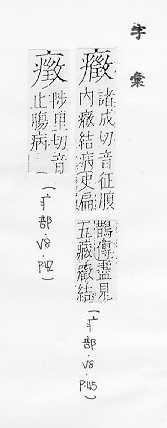 字彙
癥
諸成切音征腹
內癥結病史扁
鵲傳盡見
五藏癥結
(疒部.V8.P.45)
陟里切音
止腸病
(疒部.V8.P.42)